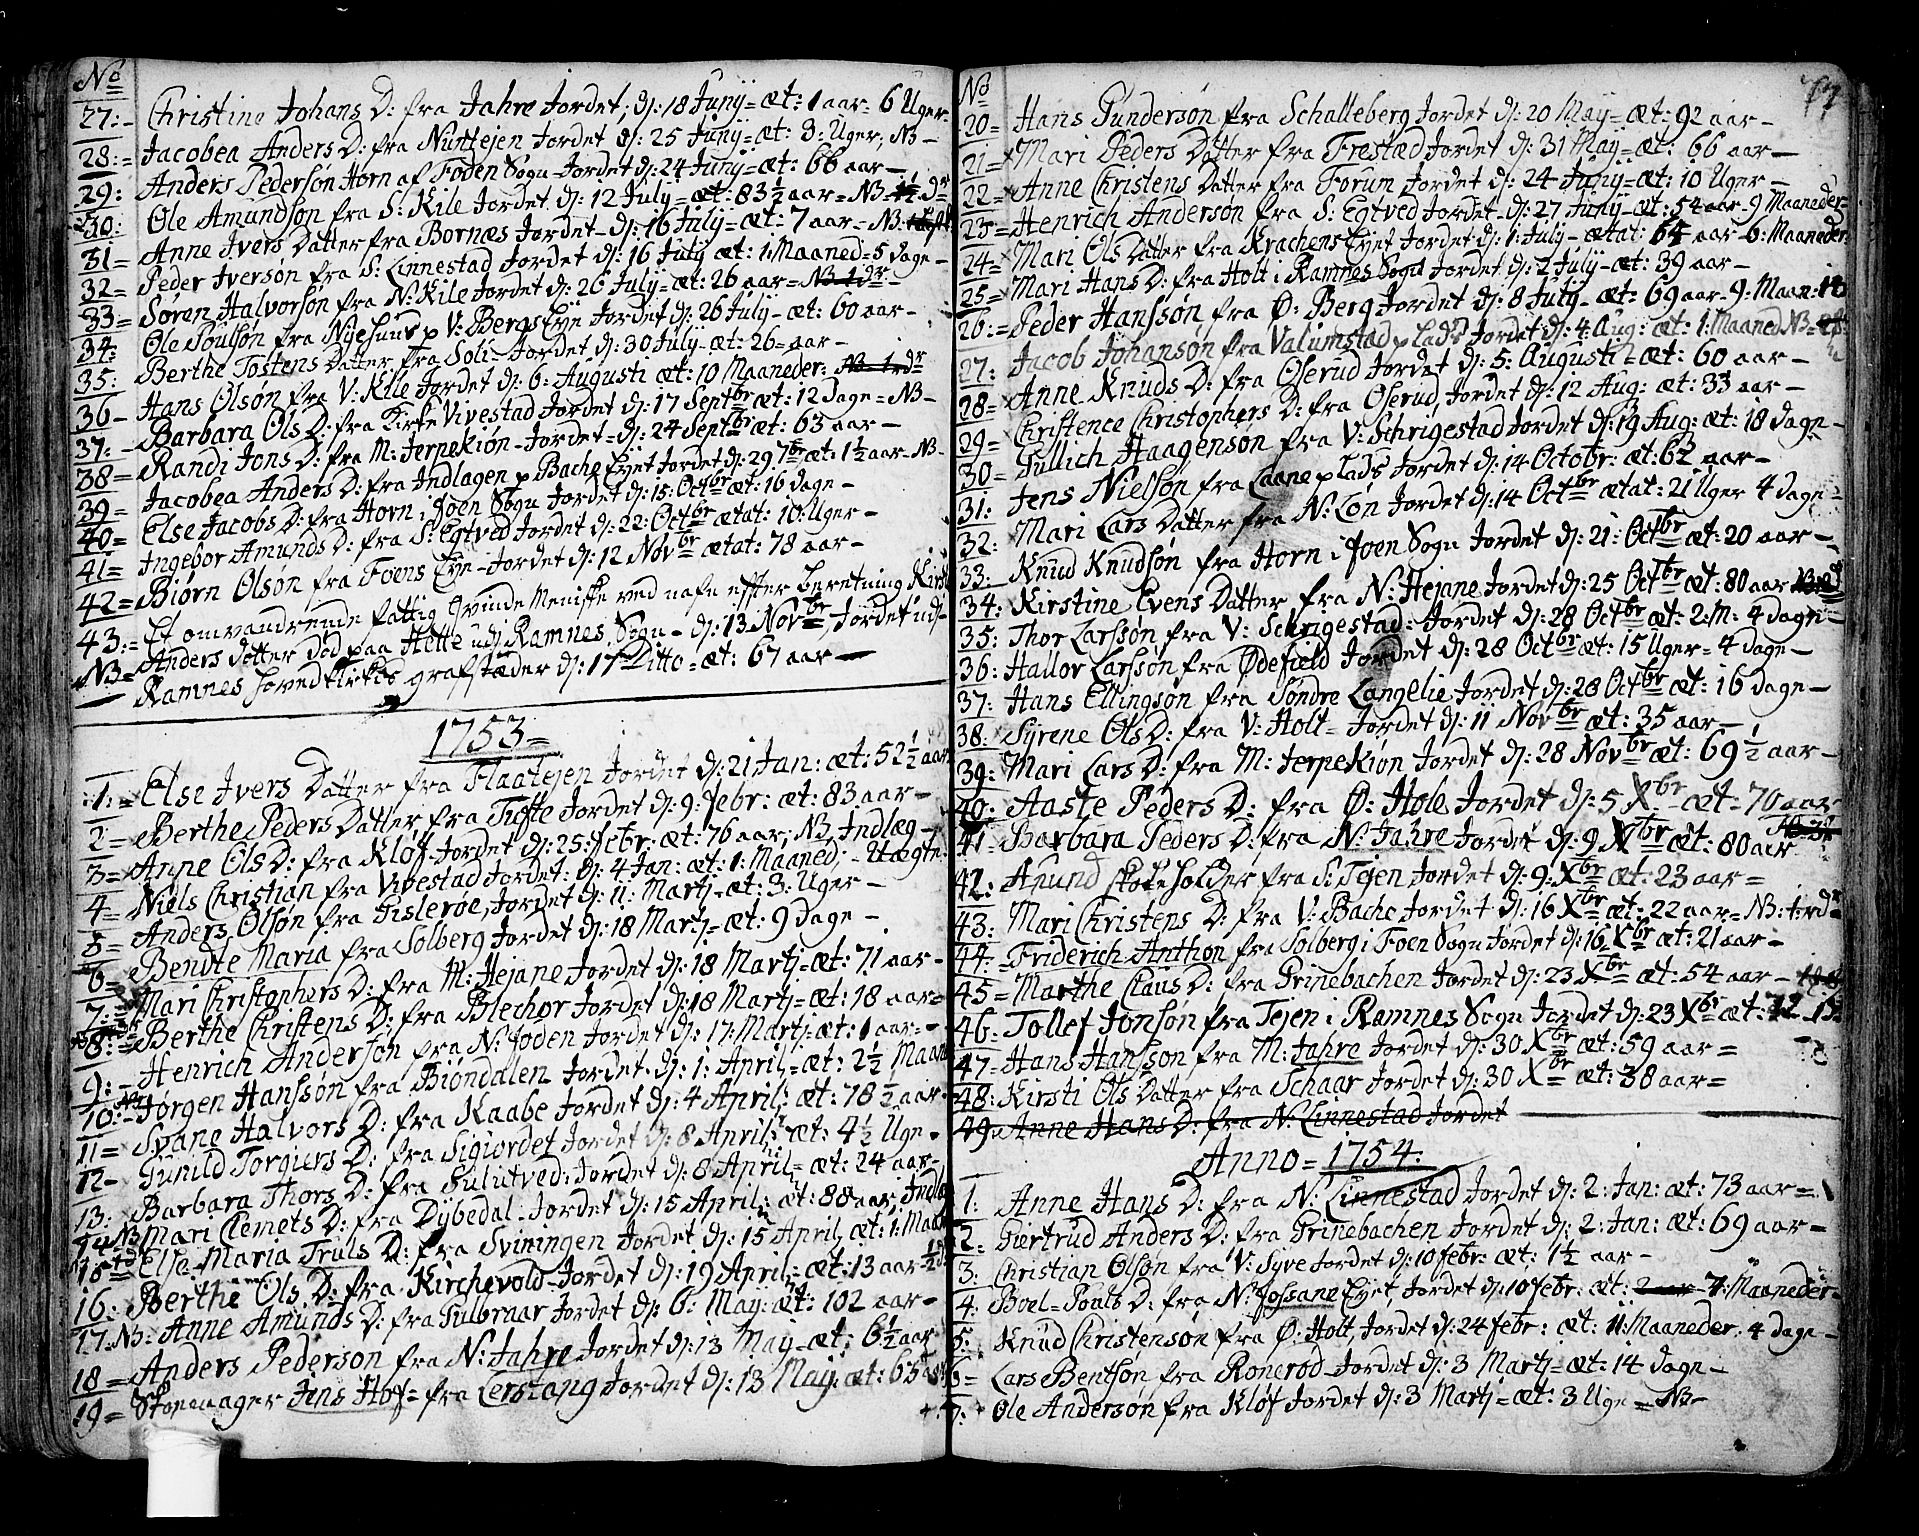 No
27:- Christine Johans D: fra Jahre Jordet, dj: 18 Junij = æt: 1 aar - 6 Uger-
28:= Jacobea Anders D: fra Nuntejen Jordet dj: 25 Junij = æt: 3: Uger, NB-
29: Anders Pederson Horn af Foden Sogn - Jordet dj: 24 Junij = æt: 66 aar-
30: Ole Amundson fra S: Kile Jordet dj: 12 July = æt: 83 ½ aar = NB
31= Anne Ivers Datter fra Bornæs Jordet - dj: 16 July = æt: 7 aar = NB
32= Peder Iversøn fra S: Linnestad Jordet dj: 16 July æt: 1: Maaned: 5 Dage-
33= Søren Halvorsøn fra N: Kile Jordet dj: 26 July = æt: 26 aar = NB 1 dr-
34: Ole Poulsøn fra Nyesund p V: Bergs Eye Jordet dj: 26 July - æt: 60 aar-
35: Berthe Tostens Datter fra Soli - Jordet dj: 30 July - æt: 26 = aar-
36- Hans Olsøn fra V: Kile Jordet dj: 6: Augusti æt: 10 Maaneder: NB 1 dr
37: Barbara Ols D: fra Kirke Vivestad Jordet dj: 17 Septbr æt: 12 Dage = NB-
38= Randi Jons D: fra M: Jerpekiøn - Jordet = dj: 24 Septbr æt: 63 aar-
39= Jacobea Anders D: fra Indlagen p Bache Eyet Jordet dj: 29 7br æt: 1½ aar - NB-
40= Else Jacobs D: fra Horn i Joen Sogn Jordet dj: 15: Octbr æt: 16 Dage-
41= Ingebor Amunds D: fra S: Egtved Jordet dj: 22: Octbr ætat: 10: Uger-
42= Biørn Olsøn fra Foens Eye - Jordet dj: 12 Novbr ætat: 78 aar-
43:= Et omvandrende fattig Qvinde Meniske ved nafn effter beretning Kirst
NB= Anders Dotter død paa Hette udj Ramnes Sogn - dj: 13 Novbr, Jordet udj
Ramnes hovedkirkes grafstæder dj: 17 Ditto = æt: 67 aar-
1753=
1:= Else Ivers Datter fra Flaatejen Jordet dj: 21 Jan: æt: 52½ aar
2= Berthe Peders Datter fra Tufte Jordet dj: 9: Febr: æt: 83 aar-
3= Anne Ols D: fra Kløf - Jordet dj: 25: Febr: æt: 76 aar, NB Indlæg-
4= Niels Christian fra Vivestad Jordet: dj: 4 Jan: æt: 1: Maaned: -
5= Anders Olsøn fra Gislerøe, Jordet dj: 11: Martj - æt: 3: Uger-
6= Bendte Maria fra Solberg Jordet dj: 18 Martj = æt: 9 Dage-
7: Mari Christophers D: fra M: Hejane Jordet dj: 18 Martj = æt: 71 aar-
8: Berthe Christens D: fra Blechor Jordet dj: 18 Martj = æt: 18 aar=
9:- Henrich Anderson fra N: Joden Jordet dj: 17: Martj = æt: 1 aar=
10: Jørgen Hanssøn fra Biøndalen Jordet: dj: 1: April = æt: 2½ Maan
11= Svane Halvors D: fra Kaabe Jordet dj: 4 April: æt: 78½ aar-
12- Gunild Torgiers D: fra Sigiordet Jordet dj: 8 April: = æt: 4½ Uge.
13: Barbara Thors D: fra Sulutved: Jordet dj: 8 April = æt: 24 aar-
14 NB Mari Clemets D: fra Dÿbedal: Jordet dj: 15 April: æt: 88 aar, Indlæ
15= Else Maria Truls D: fra Sviningen Jordet dj: 15 April æt: 1: Maan
16: Berthe Ols D: fra Kirchevold - Jordet dj: 19 April: = æt: 13 aar
17: NB: Anne Amunds D: fra Gulbrnar Jordet dj: 6: Maij: = æt: 102 aar-
18= Anders Pederson fra N: Jahre Jordet dj: 13 Maij - æt: 6½ aar
19= Skomager Jens Hof = fra Lerstang Jordet dj: 13 Maij: æt: 65
No
20= Hans Gundersøn fra Schalleberg Jordet dj: 20 Maÿ = æt: 92 aar-
21= Mari Peders Datter fra Frestæd Jordet dj: 31 Maÿ = æt: 66 aar-
22= Anne Christens Datter fra Forum Jordet dj: 24 Junij = æt: 10 Uger-
23= Henrich Andersøn fra S: Egtved Jordet - dj: 27 Junij = æt: 54 aar 9 Maaneder-
24= Mari Ols Datter fra Krachens Eyet Jordet dj: 1: July - ætat: 64 aar 6: Maaneder
25= Mari Hans D: fra Holt i Ramnes Sogn Jordet dj: 2 July - æt: 39 aar-
26:= Peder Hanssøn fra Ø: Berg Jordet dj: 8 July - æt: 69 aar - 9: Maan:
27: Jacob Johansøn fra Valumstad plads Jordet dj: 4 Aug: æt: 1: Maaned NB=
28= Anne Knuds D: fra Oserud Jordet dj: 5: Augusti = æt: 60 aar-
29= Christence Christophers D: fra Oserud, Jordet dj: 12 Aug: æt: 33 aar-
30= Gullich Haagenson fra V: Schrigestad Jordet dj: 19 Aug: æt: 18 Dage-
31: Jens Nielson fra Laane plads Jordet dj: 14 Octobr: æt: 62 aar-
32: Mari Lars Datter fra N: Løn Jordet dj: 14 Octbr ætat: 21 Uger 4 dage
33: Knud Knudsøn fra Horn i Joen Sogn Jordet dj: 21: Octbr æt: 20 aar-
34: Kirstine Evens Datter fra N: Hejane Jordet dj: 25 Octbr æt: 80 aar
35: Thor Larssøn fra V: Schrigestad: Jordet dj: 28 Octbr æt: 2: M: 4 dage-
36: Hallor Larssøn fra Ødefield Jordet dj: 28 Octbr æt: 15 Uger = 4 dage-
37: Hans Ellingsøn fra Søndre Langelie Jordet dj: 28 Octbr æt: 16 dage-
38: Syrene Ols D: fra V: Holt = Jordet dj: 11 Novbr æt: 35 aar-
39: Mari Lars D: fra M: Jerpekiøn Jordet dj: 28 Novbr æt: 69½ aar-
40: Aaste Peders D: fra Ø: Hole Jordet dj: 5 Xbr æt = 70 aar
41- Barbara Peders D: fra N: Jahre Jordet dj: 9 Xbr æt: 80 aar
42: Amund skoeholder fra S: Tejen Jordet dj: 9: Xbr æt: 23 aar=
43: Mari Christens D: fra V: Bache Jordet dj: 16 Xbr æt: 22 aar = NB: 1: rdr
44: Friderich Anthon fra Solberg i Foen Sogn Jordet dj: 16 Xbr æt: 21 aar-
45= Marthe Claus D: fra Grinebachen Jordet dj: 23 Xbr æt: 54 aar-
46: Tollef Jonsøn fra Tejen i Ramnes Sogn Jordet dj: 23 Xbr æt: 72
47= Hans Hanssøn fra M: Jahre Jordet dj: 30 Xbr æt: 59 aar=
48: Kirsti Ols Datter fra Schaar Jordet dj: 30 Xbr æt: 38 aar=
49. Anne Hans D: fra N: Linnestad Jordet
Anno = 1754:
1: Anne Hans D: fra N: Linnestad Jordet dj: 2: Jan: æt: 73 aar=
2: Giertrud Anders D: fra Grinebachen Jordet dj: 2: Jan: æt: 69 aar-
3: Christian Olsøn fra V: Syve Jordet dj: 10 Febr: æt: 1½ aar-
4: Boel = Pouls D: fra N: Jossane Eyet, Jordet dj: 10 Febr: æt: 2 aar 7: Maaneder-
5: Knud Christensøn fra Ø: Holt, Jordet dj: 24 Febr: æt: 11: Maaneder. 4 dage-
6= Lars Bentsøn fra Ronerod Jordet dj: 3 Martj = æt: 14 dage-
7: Ole Andersøn fra Kløf Jordet dj: 3 Martj = æt: 3 Uge = NB-